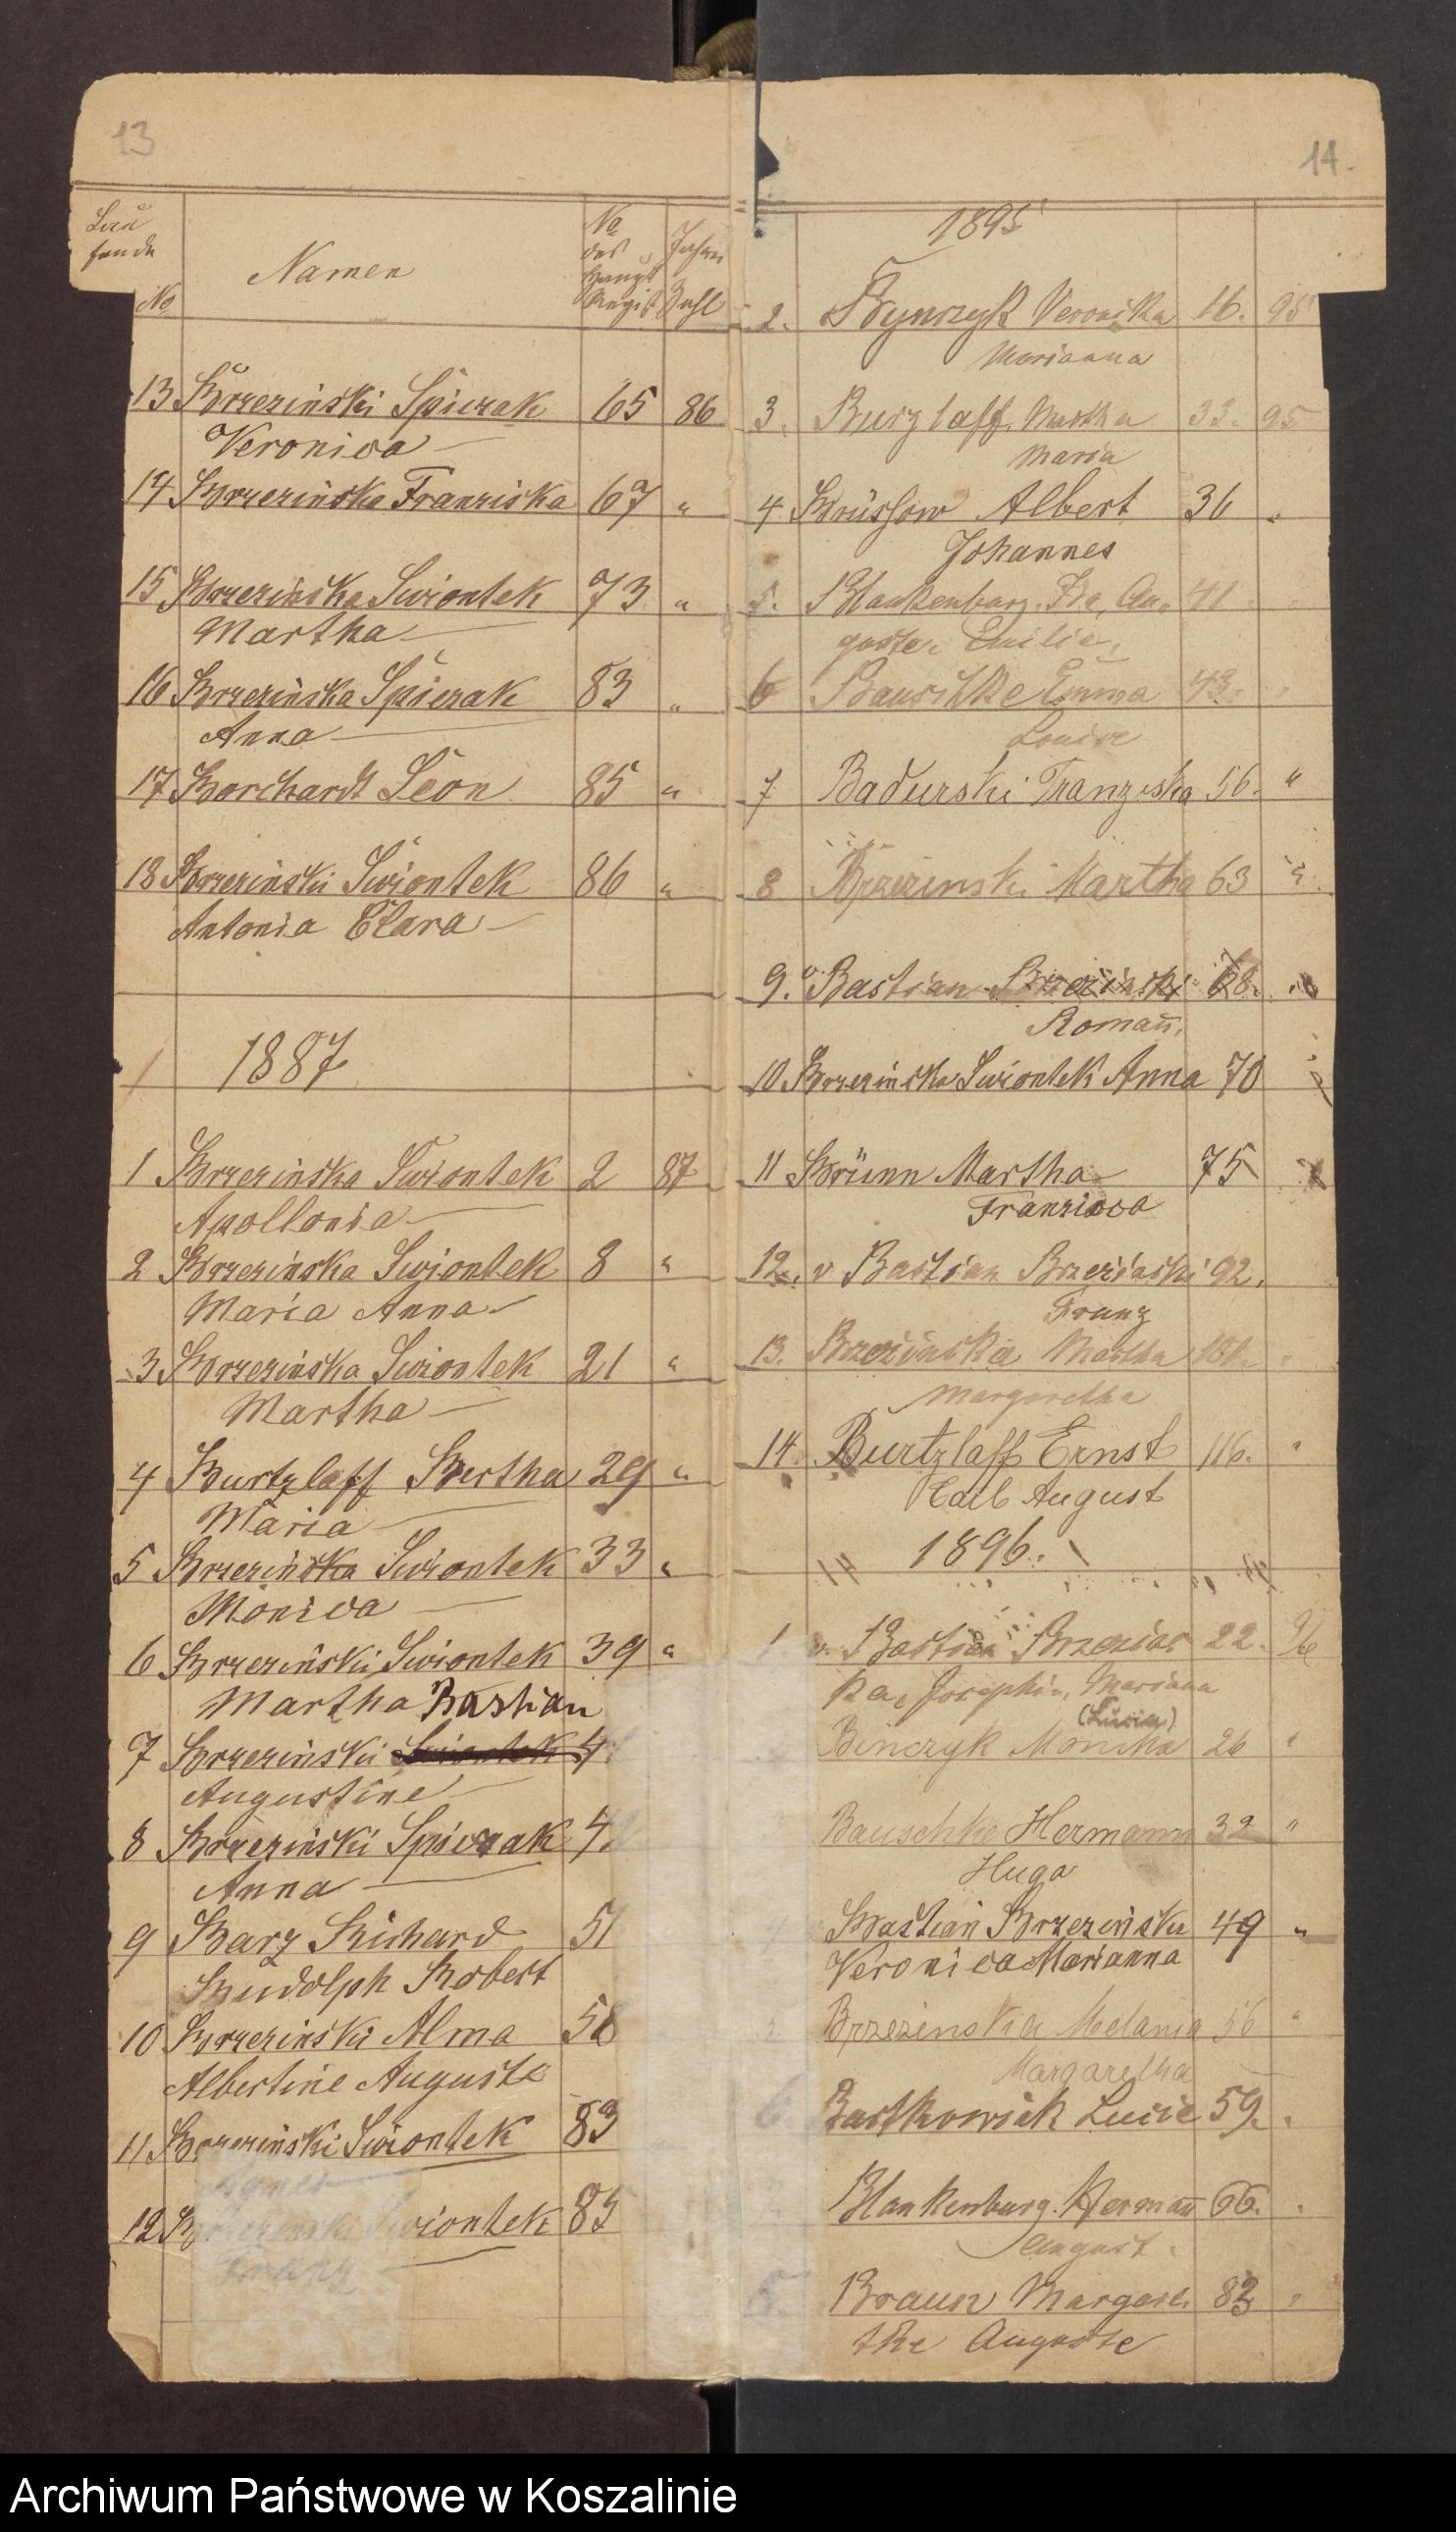 13
Lau
fende
No
Namen
No
des
Haupt
Regist
Jahres
Zahl
13 Brzezinski Spiczak 65 86
Veronica
14 Brzezinska Franziska 67 "
15 Brzezinska Swiontek 73 "
Martha
16 Brzezinska Spiczak 83 "
Anna
17 Borchardt Leon 85 "
18 Brzezinski Swiontek 86 "
Antonia Clara
1887
1 Brzezinska Swiontek 2 87
Apollonia
2 Brzezinska Swiontek 8 "
Maria Anna
3 Brzezinska Swiontek 21 "
Martha
4 Burtzlaff Bertha 29 "
Maria
5 Brzezinska Swiontek 33 "
Monica
6 Brzezinski Swiontek 39 "
Martha Bastian
7 Brzezinski Swiontek 4
Augustine
8 Brzezinski Spiczak 4
Anna
9 Barz Richard 51
Rudolph Robert
10 Brzezinski Alma 58
Albertine Auguste
11 Brzezinski Swiontek 83
Agnes
12 Brzezinski Swiontek 85
Franz
14.
1895
2. Bynczyk Veronika 16. 95
Marianna
3. Burzlaff, Martha 33. 95
Maria
4. Brüssow Albert 36 "
Johannes
5. Blankenburg, Ida, Au- 41
guste, Emilie,
6 Bauschke Emma 43. "
Louise
7 Badurski Franziska 56. "
8 Brzezinski Martha 63 "
9. v Bastian Brzezinski 68. "
Roman,
10 Brzezinska Swiontek Anna 70
11 Brünn Martha 75
Franzisca
12. v Bastian Brzezinski 92.
Franz
13. Brzezinska Martha 101. "
Margaretha
14. Burtzlaff Ernst 116. "
Carl August
1896.
1. v. Bastian Brzezins 22. 96
ka, Josephin, Mariana
(Lucia)
Binczyk Monika 26 "
Bauschke Hermann 32 "
Hugo
4 Bastian Brzezinska 49 "
Veronica Marianna
5. Brzezinska Melania 56 "
Margaretha
6. Bartkowiak Lucie 59. "
Blankenburg, Hermann 66. "
August.
Braun Margare- 83 "
the Auguste
Archiwum Państwowe w Koszalinie